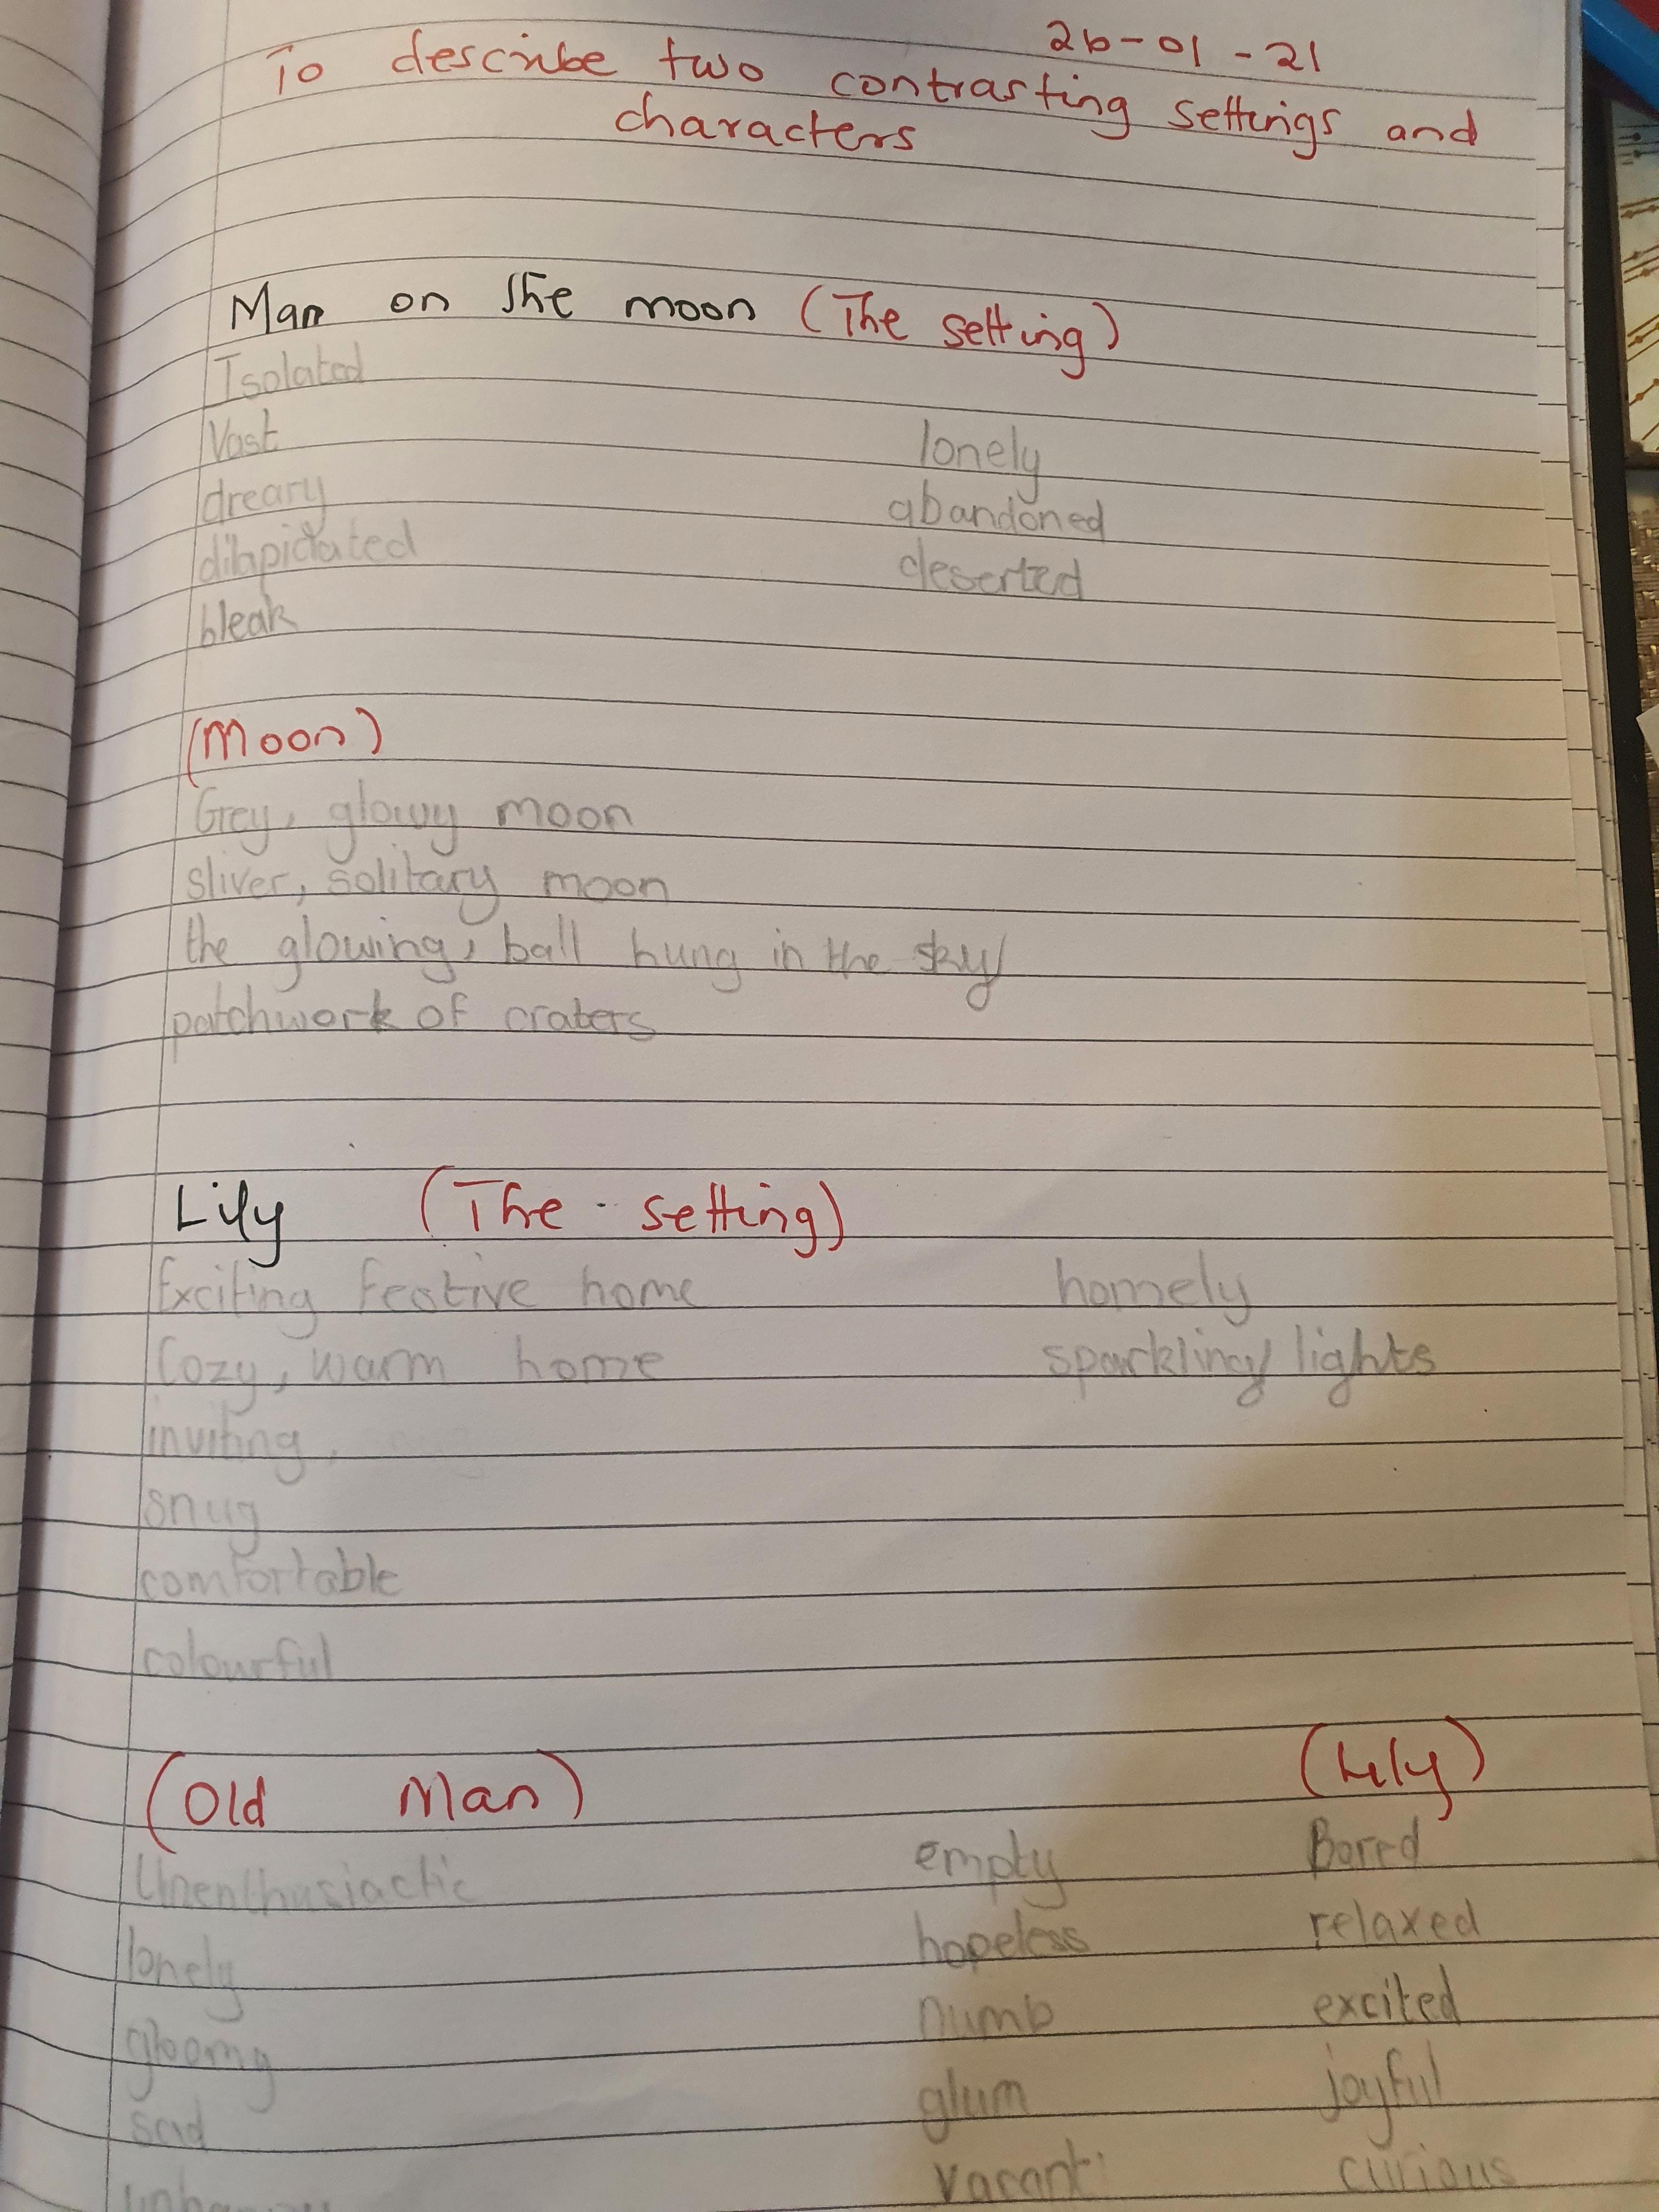 26-01-21
To describe two contrasting settings and
characters
Man on the moon (The setting)
Isolated
Vast lonely
dreary abandoned
dilapidated deserted
bleak
(Moon)
Grey, glowy moon
sliver, solitary moon
the glowing, ball hung in the sky
patchwork of craters
Lily (The setting)
Exciting Festive home homely
Cozy, warm home sparkling lights
inviting,
snug
comfortable
colourful
(Old Man) (Lily)
Unenthusiactic empty Bored
lonely hopeless relaxed
gloomy numb excited
sad glum joyful
vacant curious